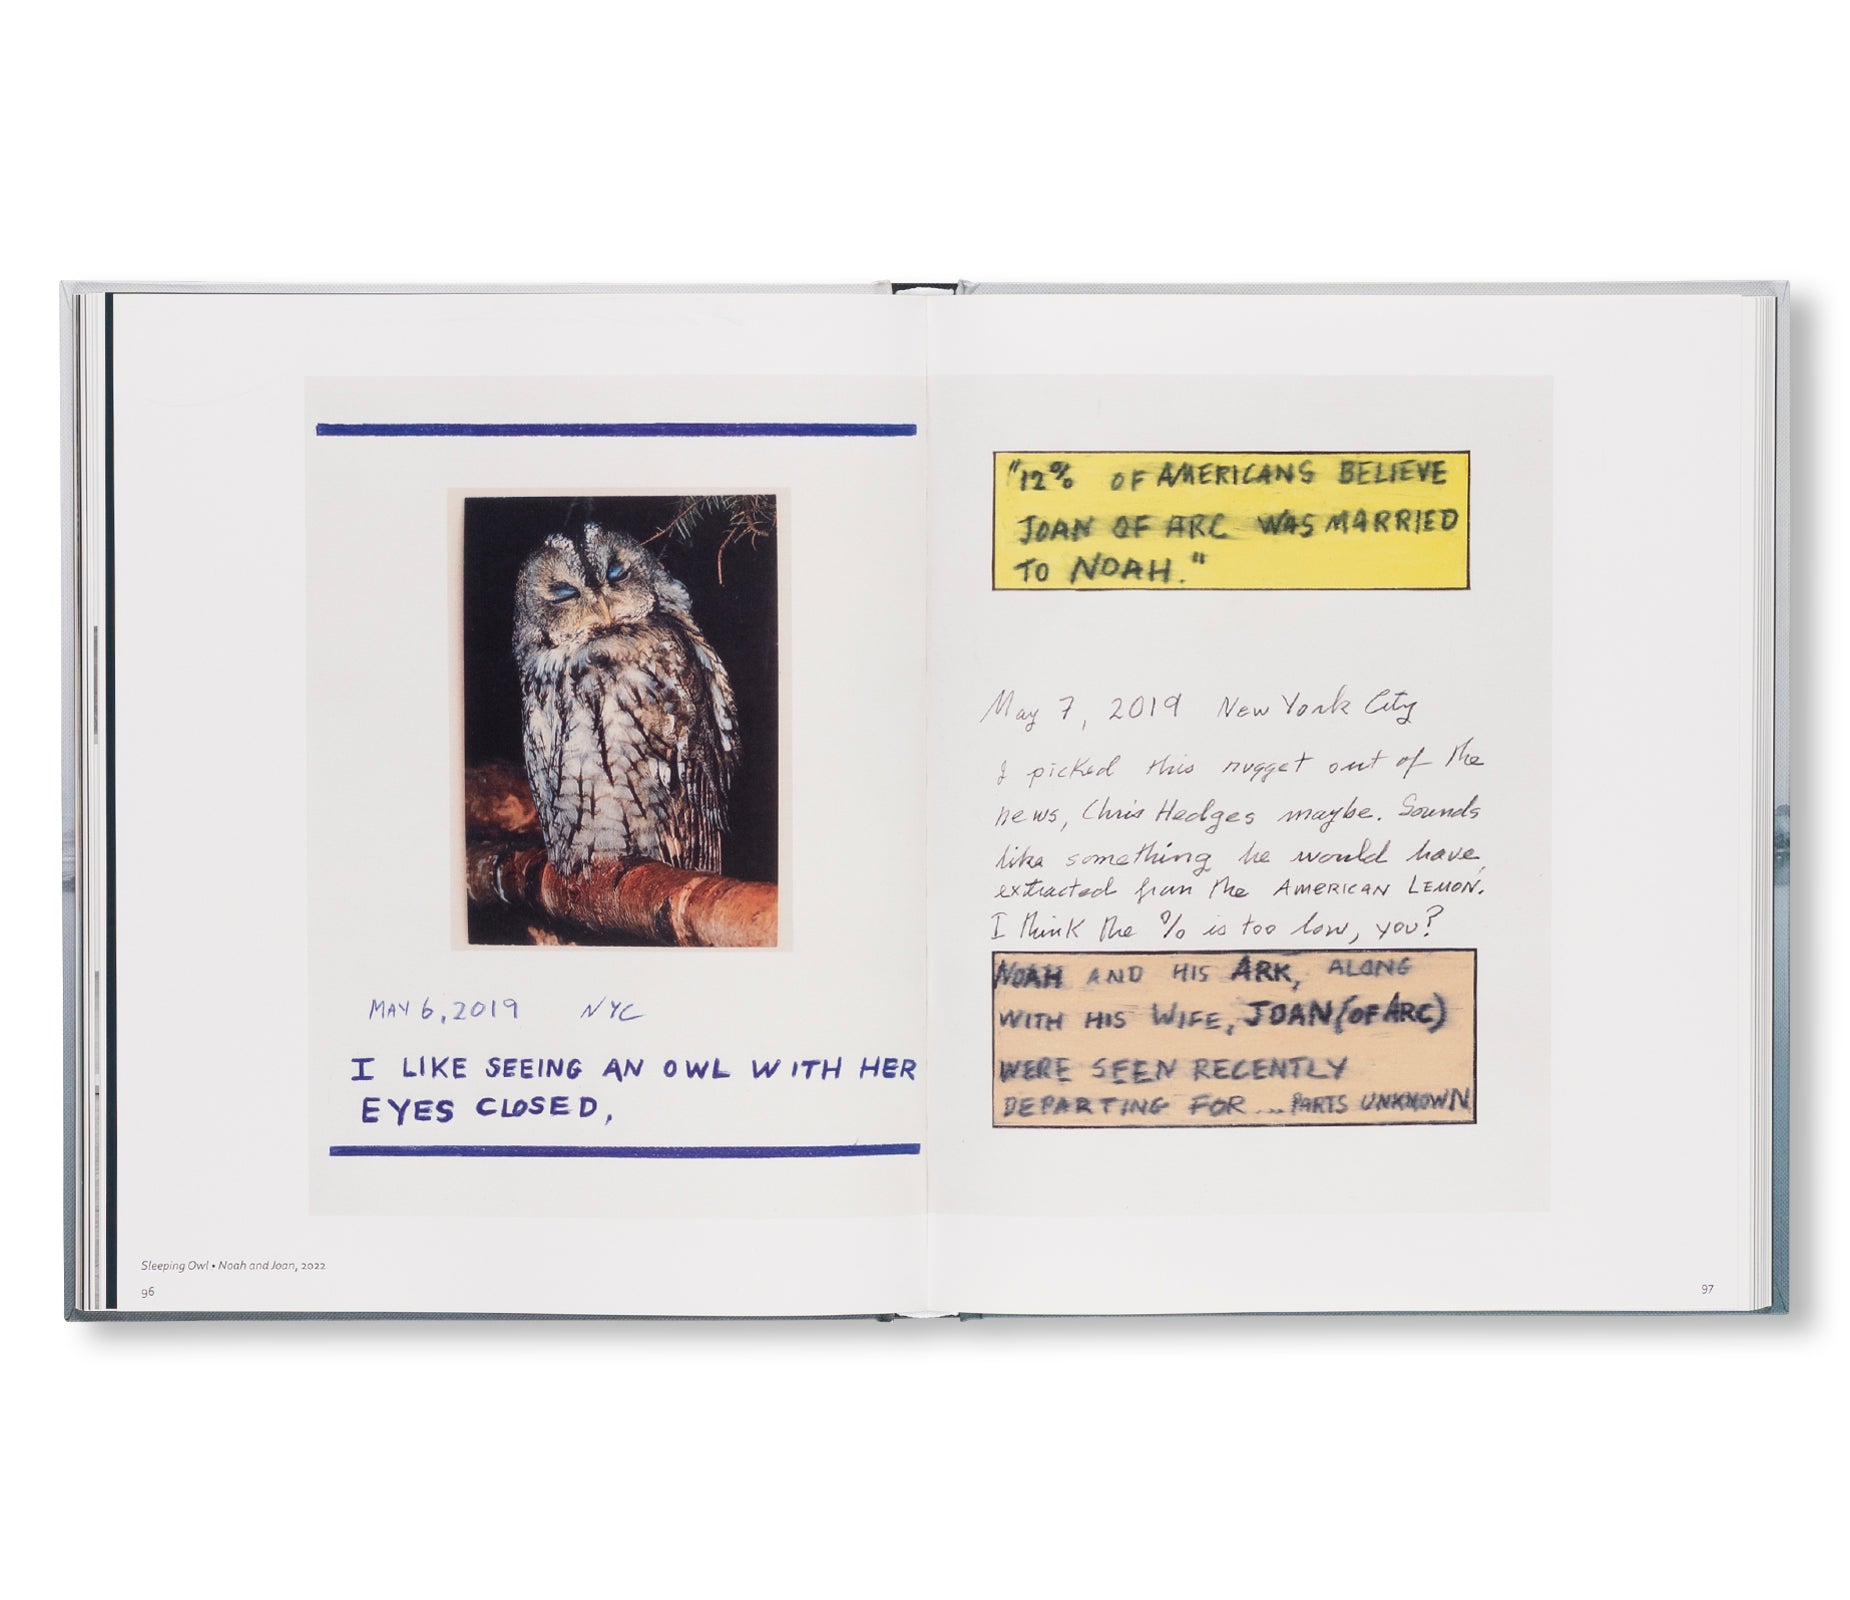 MAY 6, 2019 NYC
I LIKE SEEING AN OWL WITH HER
EYES CLOSED,
Sleeping Owl • Noah and Joan, 2022
96
"12% OF AMERICANS BELIEVE
JOAN OF ARC WAS MARRIED
TO NOAH."
May 7, 2019 New York City
I picked this nugget out of the
news, Chris Hedges maybe. Sounds
like something he would have
extracted from the AMERICAN LEMON.
I think the % is too low, you?
NOAH AND HIS ARK, ALONG
WITH HIS WIFE, JOAN (OF ARC)
WERE SEEN RECENTLY
DEPARTING FOR ... PARTS UNKNOWN
97